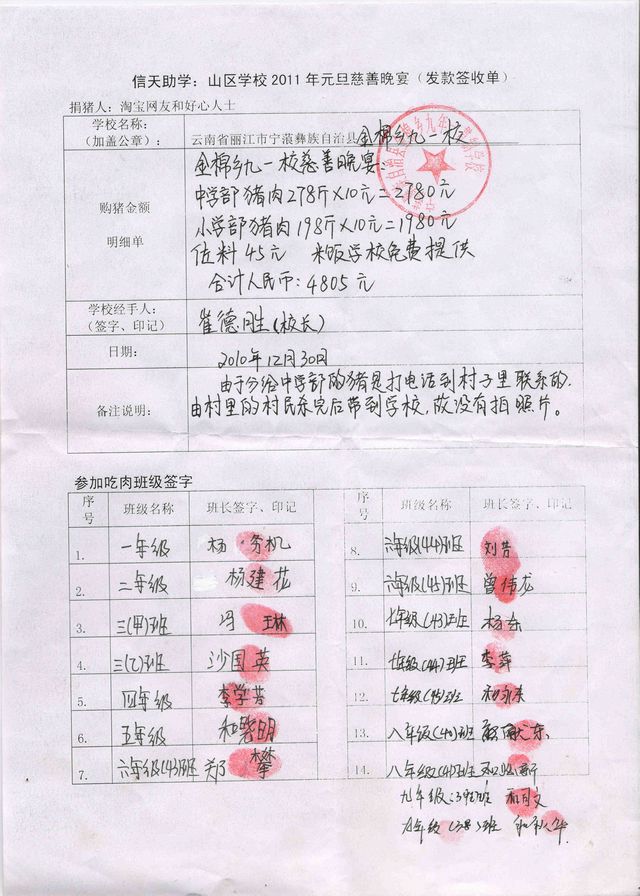 信天助学：山区学校 2011 年元旦慈善晚宴（发款签收单）
捐猪人：淘宝网友和好心人士
学校名称：
（加盖公章）：
云南省丽江市宁蒗彝族自治县金棉乡九一校
购猪金额
明细单
金棉乡九一校慈善晚宴：
中学部猪肉278斤×10元=2780元
小学部猪肉198斤×10元=1980元
佐料45元 米饭学校免费提供
合计人民币：4805元
学校经手人：
（签字、印记）
崔德胜（校长）
日期：
2010年12月30日
备注说明：
由于今给中学部的猪是打电话到村子里联系的.
由村里的村民杀完后带到学校，故没有拍照片。
参加吃肉班级签字
序号 班级名称 班长签字、印记
1. 一年级 杨
2. 二年级 杨建花
3. 三(甲)班 冯
4. 三(乙)班 沙国英
5. 四年级 李学芳
6. 五年级 和晓明
7. 六年级(43)班 郑攀
序号 班级名称 班长签字、印记
8. 六年级(44)班 刘
9. 六年级(45)班 曾伟龙
10. 七年级(43)班 杨东
11. 七年级(44)班 李萍
12. 七年级(45)班 和永
13. 八年级(40)班 东
14. 八年级(4)班
九年级:39班 和
九年级(38)班 华